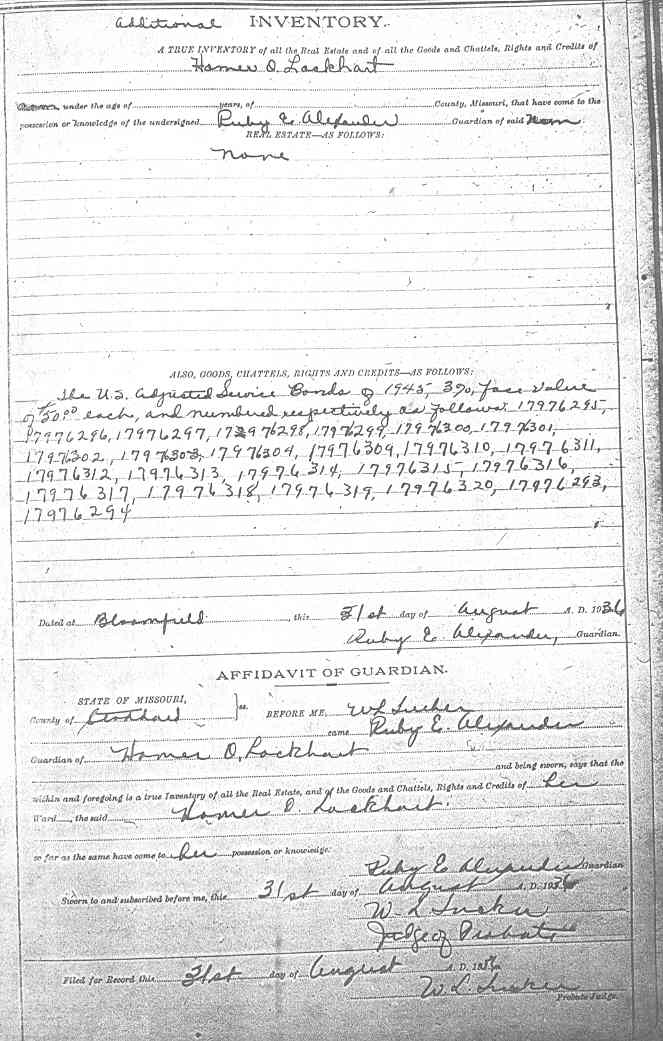 Additional INVENTORY.
A TRUE INVENTORY of all the Real Estate and of all the Goods and Chattels, Rights and Credits of
Homer O. Lockhart
under the age of years, of County, Missouri, that have come to the
possession or knowledge of the undersigned Ruby E. Alexander Guardian of said
REAL ESTATE—AS FOLLOWS:
None
ALSO, GOODS, CHATTELS, RIGHTS AND CREDITS—AS FOLLOWS:
The U.S. Adjusted Service Bonds of 1945, 3%, face value
of $50.00 each, and numbered respectively as follows: 17976295,
17976296, 17976297, 17976298, 17976299, 17976300, 17976301,
17976302, 17976303, 17976304, 17976309, 17976310, 17976311,
17976312, 17976313, 17976314, 17976315, 17976316,
17976317, 17976318, 17976319, 17976320, 17976293,
17976294
Dated at Bloomfield, this 31st day of August A. D. 1936
Ruby E. Alexander, Guardian.
AFFIDAVIT OF GUARDIAN.
STATE OF MISSOURI,
County of Stoddard ss. BEFORE ME,
came Ruby E. Alexander
Guardian of Homer O. Lockhart
and being sworn, says that the
within and foregoing is a true Inventory of all the Real Estate, and of the Goods and Chattels, Rights and Credits of her
Ward, the said Homer O. Lockhart.
so far as the same have come to her possession or knowledge.
Ruby E Alexander Guardian
Sworn to and subscribed before me, this 31st day of August A. D. 1936
W. L.
Judge of Probate
Filed for Record this 31st day of August A. D. 1936
W. L.
Probate Judge.